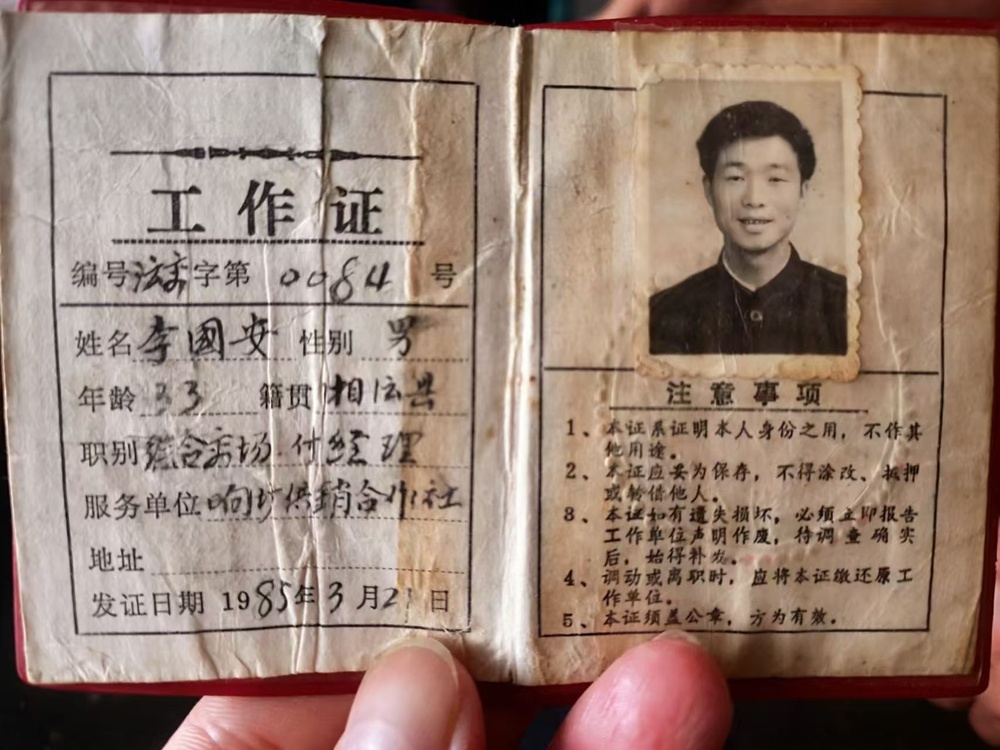 工作证
编号 字第 0084 号
姓名 李國安 性别 男
年龄 33 籍贯 相
职别 综合商场.付经理
服务单位 供销合作社
地址
发证日期 1985年3月2 日
注意事项
1、本证系证明本人身份之用，不作其
他用途。
2、本证应妥为保存，不得涂改、抵押
或转借他人。
3、本证如有遗失损坏，必须立即报告
工作单位声明作废，待调查确实
后，始得补发。
4、调动或离职时，应将本证缴还原工
作单位。
5、本证须盖公章，方为有效。